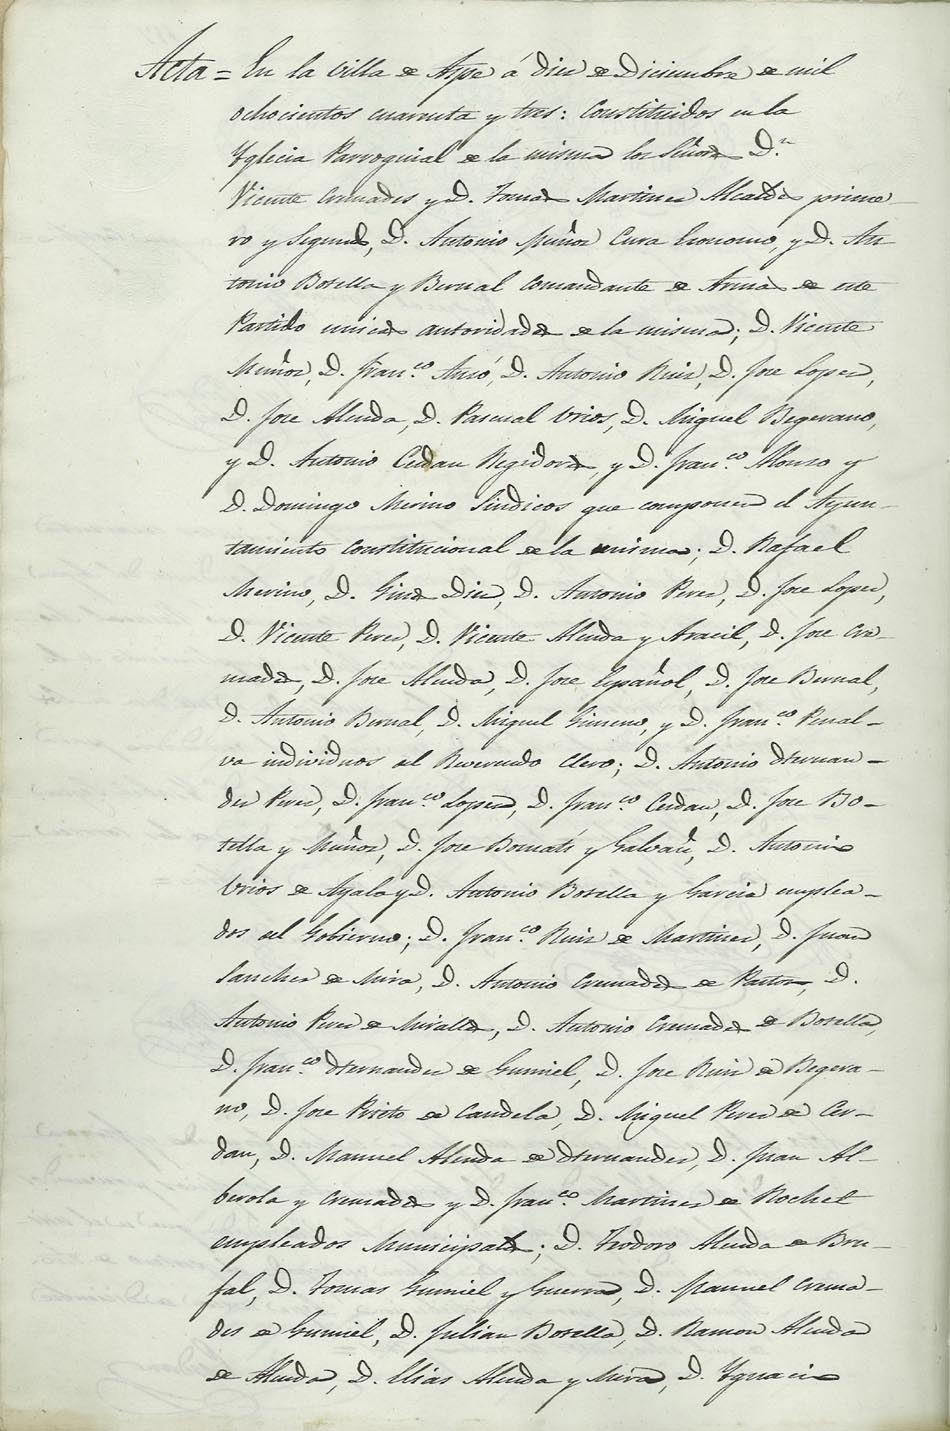 Acta = En la Villa de Aspe á diez de Diciembre de mil
ochocientos cuarenta y tres: Constituidos en la
Yglecia Parroquial de la misma los Señores D.n
Vicente Cremades y D. Tomas Martinez Alcaldes prime-
ro y Segundo, D. Antonio Muñoz Cura Economo, y D. An-
tonio Botella y Bernal Comandante de Armas de este
Partido unicas autoridades de la misma; D. Vicente
Muñoz, D. Fran.co Asnó, D. Antonio Ruiz, D. Jose Lopez,
D. Jose Almda, D. Pascual Urios, D. Miguel Begerano,
y D. Antonio Cerdan Regidores, y D. Fran.co Alonso y
D. Domingo Merino Sindicos que componen el Ayun-
tamiento Constitucional de la misma; D. Rafael
Merino, D. Gines Diez, D. Antonio Perez, D. Jose Lopez,
D. Vicente Perez, D. Vicente Almda y Aracil, D. Jose Cre-
mades, D. Jose Almda, D. Jose Español, D. Jose Bernal,
D. Antonio Bernal, D. Miguel Gimeno, y D. Fran.co Penal-
va individuos del Reverendo Clero; D. Antonio Hernan-
dez Perez, D. Fran.co Lopez, D. Fran.co Cerdan, D. Jose Bo-
tella y Muñoz, D. Jose Bornati y Galvañ, D. Antonio
Urios de Ayala y D. Antonio Botella y Garcia emplea-
dos del Gobierno; D. Fran.co Ruiz de Martinez, D. Juan
Sanchez de Mira, D. Antonio Cremades de Pastor, D.
Antonio Perez de Miralles, D. Antonio Cremades de Botella,
D. Fran.co Hernandez de Gumiel, D. Jose Ruiz de Begera-
no, D. Jose Prieto de Candela, D. Miguel Perez de Cer-
dan, D. Manuel Almda de Hernandez, D. Juan Al-
berola y Cremades y D. Fran.co Martinez de Rochel
empleados Municipales; D. Teodoro Almda de Bru-
fal, D. Tomas Gumiel y Guerra, D. Manuel Crema-
des de Gumiel, D. Julian Botella, D. Ramon Almda
de Almda, D. Elias Almda y Mira, D. Ygnacio